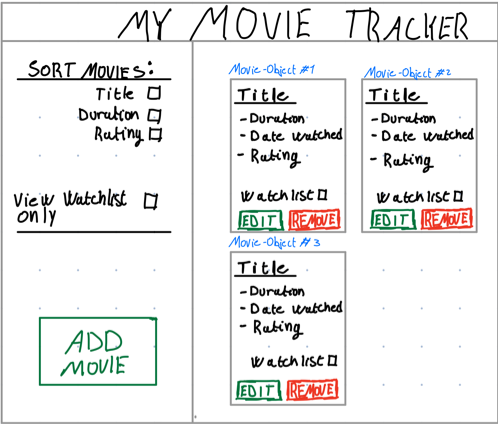 MY MOVIE TRACKER
SORT MOVIES:
Title
Duration
Rating
View Watchlist
only
ADD
MOVIE
Movie-Object #1
Title
- Duration
- Date watched
- Rating
Watchlist
EDIT REMOVE
Movie-Object #2
Title
- Duration
- Date watched
- Rating
Watchlist
EDIT REMOVE
Movie-Object #3
Title
- Duration
- Date watched
- Rating
Watchlist
EDIT REMOVE